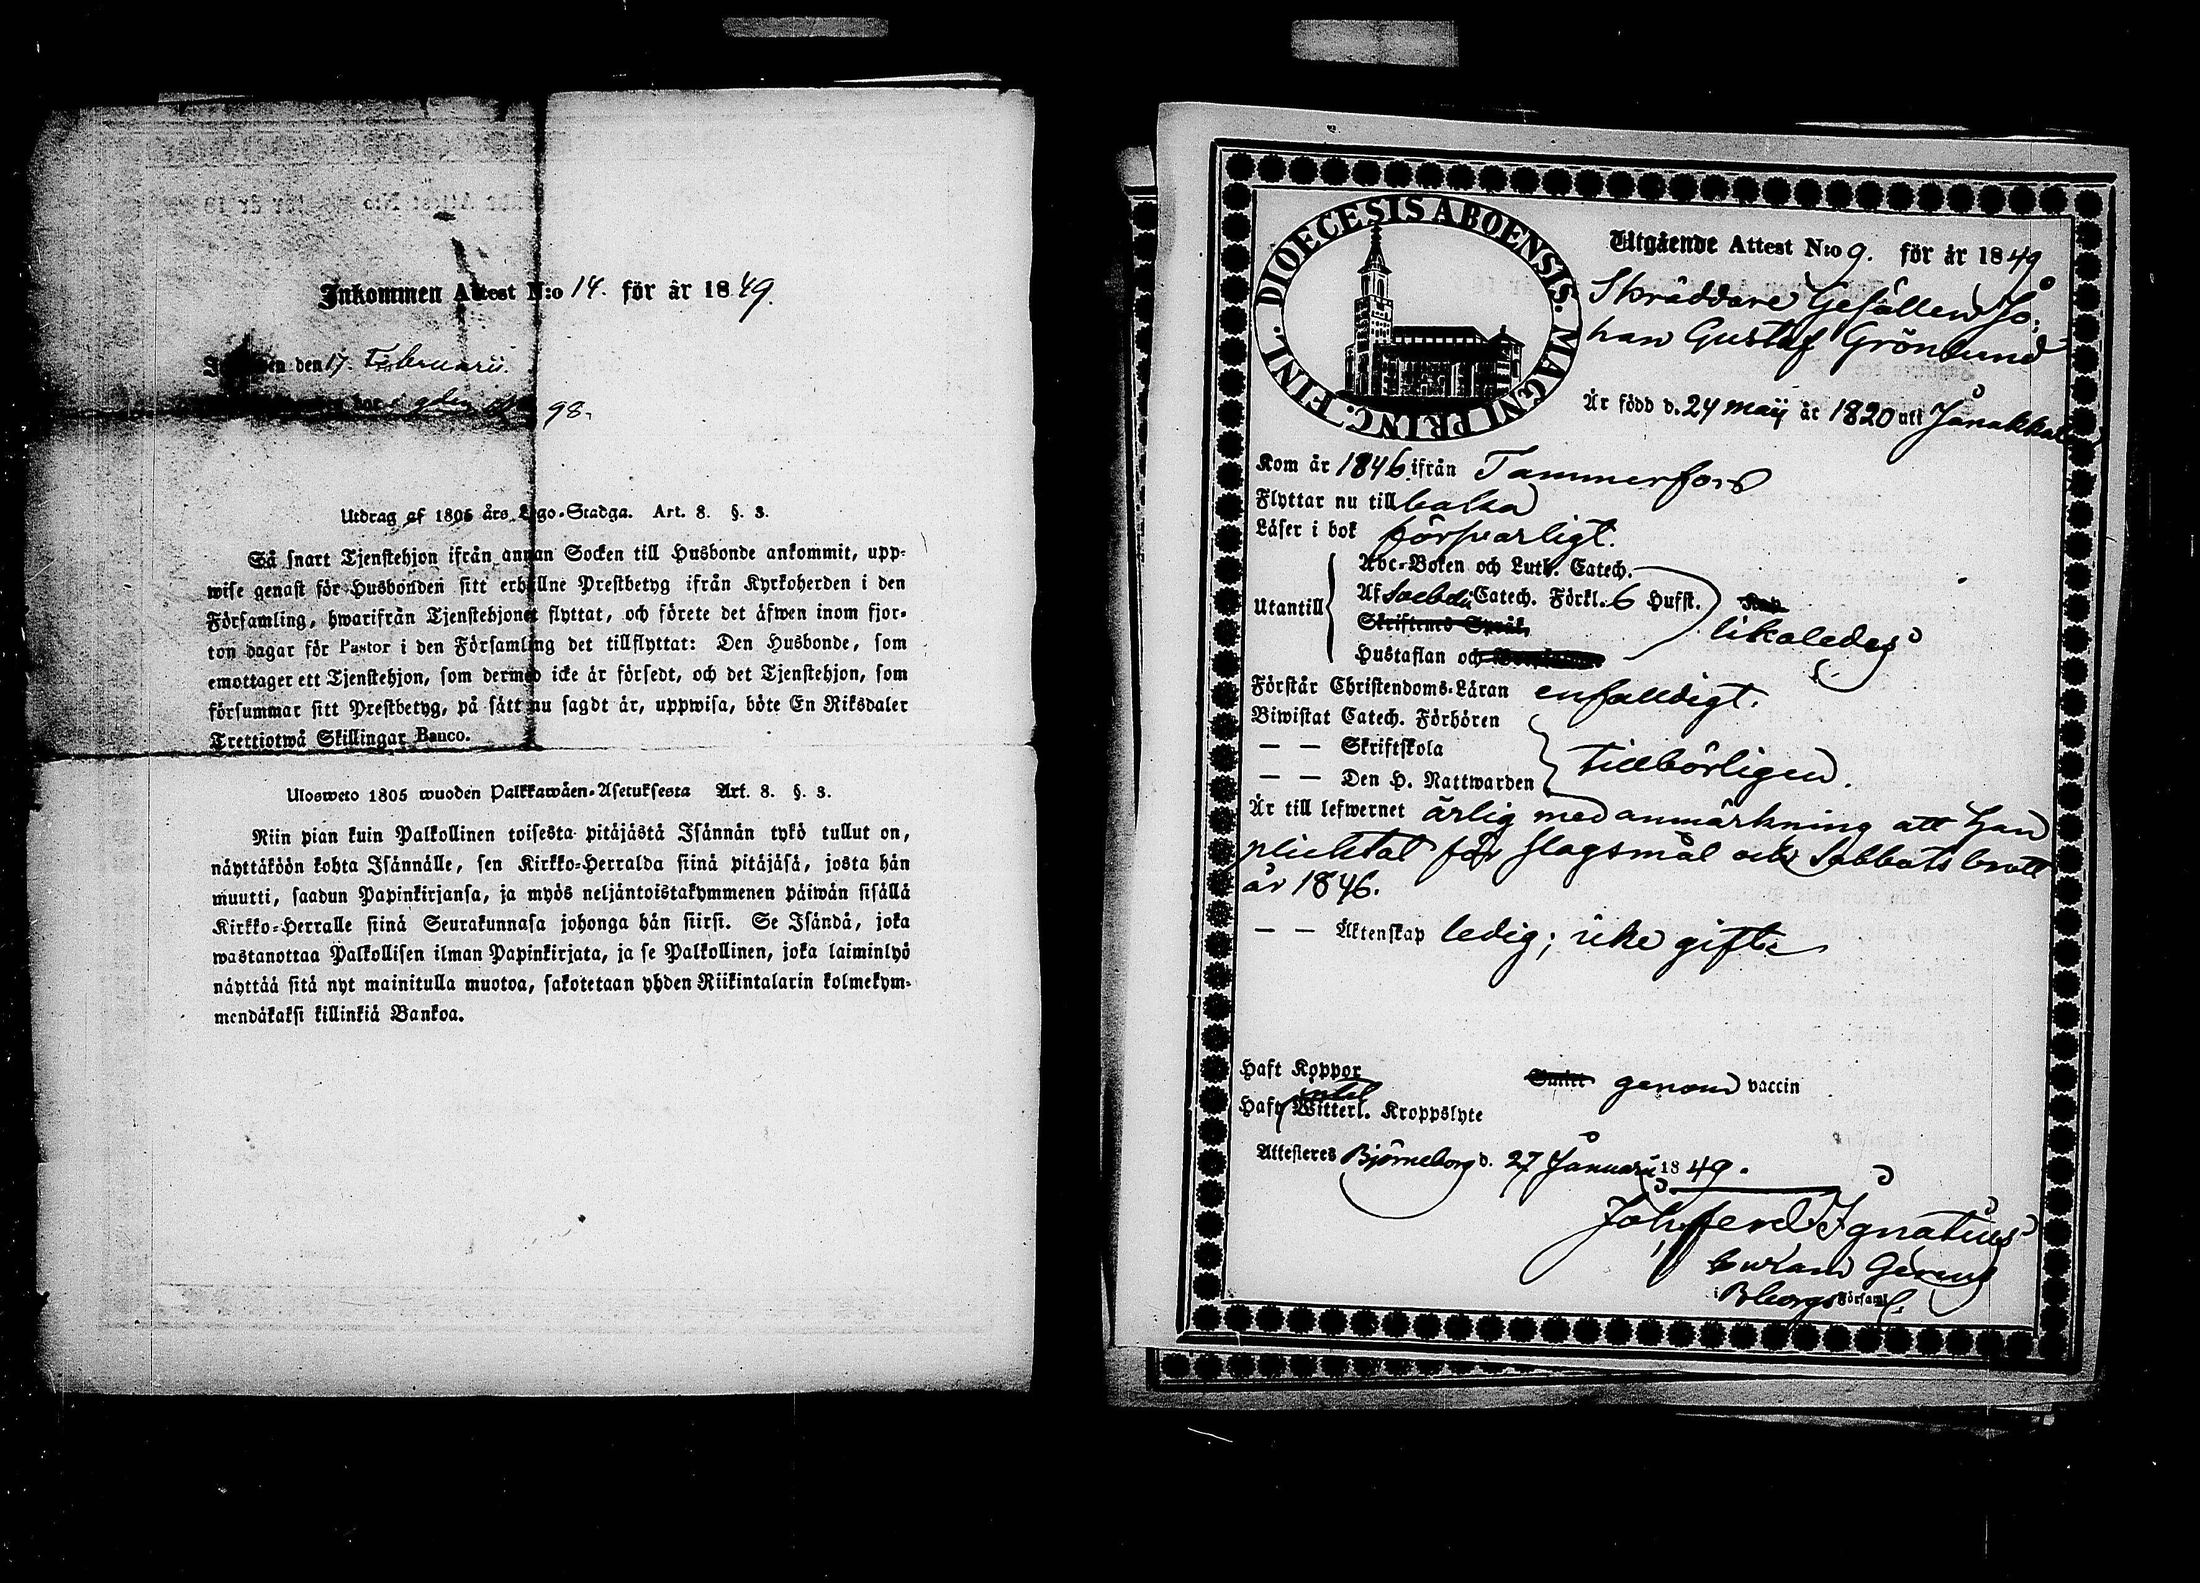 Inkommen Attest N:o 14. för år 1849.
den 17. Februarii
98.
Utdrag af 1805 års Lego-Stadga. Art. 8. §. 3.
Så snart Tjenstehjon ifrån annan Socken till Husbonde ankommit, upp-
wise genast för Husbonden sitt erhållne Prestbetyg ifrån Kyrkoherden i den
Församling, hwarifrån Tjenstehjonet flyttat, och förete det äfwen inom fjor-
ton dagar för Pastor i den Församling det tillflyttat: Den Husbonde, som
emottager ett Tjenstehjon, som dermed icke är försedt, och det Tjenstehjon, som
försummar sitt Prestbetyg, på sätt nu sagdt är, uppwisa, böte En Riksdaler
Trettiotwå Skillingar Banco.
Ulosweto 1805 wuoden Palkkawäen-Asetuksesta Art. 8. §. 3.
Niin pian kuin Palkollinen toisesta pitäjästä Isännän tykö tullut on,
näyttäköön kohta Isännälle, sen Kirkko-Herralda siinä pitäjäsä, josta hän
muutti, saadun Papinkirjansa, ja myös neljäntoistakymmenen päiwän sisällä
Kirkko-Herralle siinä Seurakunnasa johonga hän siirsi. Se Isändä, joka
wastanottaa Palkollisen ilman Papinkirjata, ja se Palkollinen, joka laiminlyö
näyttää sitä nyt mainitulla muotoa, sakotetaan yhden Riikintalarin kolmekym-
mendäkaksi killinkiä Bankoa.
DIOECESIS ABOENSIS. MAGNI PRINC. FINL.
Utgående Attest N:o 9. för år 1849
Skräddare Gesällen Jo-
han Gustaf Grönlund
Är född d. 24 maij år 1820 uti Janakkala
Kom år 1846 ifrån Tammerfors
Flyttar nu tillbaka
Läser i bok försvarligt.
Abc-Boken och Luth. Catech.
Utantill Af Svebelii Catech. Förkl. 6 Hufst. likaledes
Skriftenes Språk,
Hustaflan och
Förstår Christendoms-Läran enfaldigt.
Biwistat Catech. Förhören
— — Skriftskola tillbörligen.
— — Den H. Nattwarden
Är till lefwernet ärlig med anmärkning att Han
plicktat för slagsmål och Sabbatsbrott
år 1846.
— — Äktenskap ledig; icke gifter
Haft Koppor genom vaccin
Haft intet Witterl. Kroppslyte
Attesteres Björneborg d. 27 Januarii 1849.
Joh. Ferd. Ignatius
Curam Gerens
i Bborgs Församl.